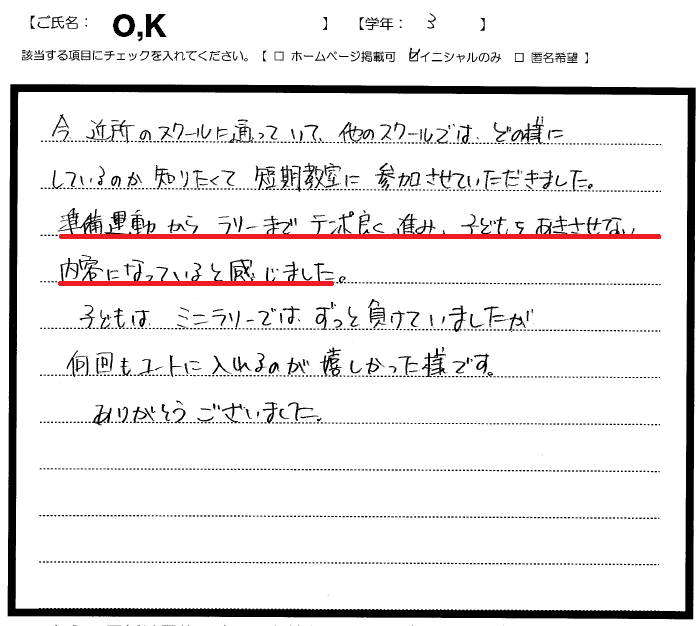 【ご氏名： O,K 】 【学年： 3 】
該当する項目にチェックを入れてください。【 □ ホームページ掲載可 ☑イニシャルのみ □ 匿名希望 】
今 近所のスクールに通っていて、他のスクールでは、どの様に
しているのか 知りたくて 短期教室に 参加させていただきました。
準備運動から ラリーまで テンポ良く 進み、子どもを あきさせない
内容になっていると感じました。
子どもは ミニラリーでは ずっと負けていましたが
何回もコートに入れるのが 嬉しかった様です。
ありがとうございました。